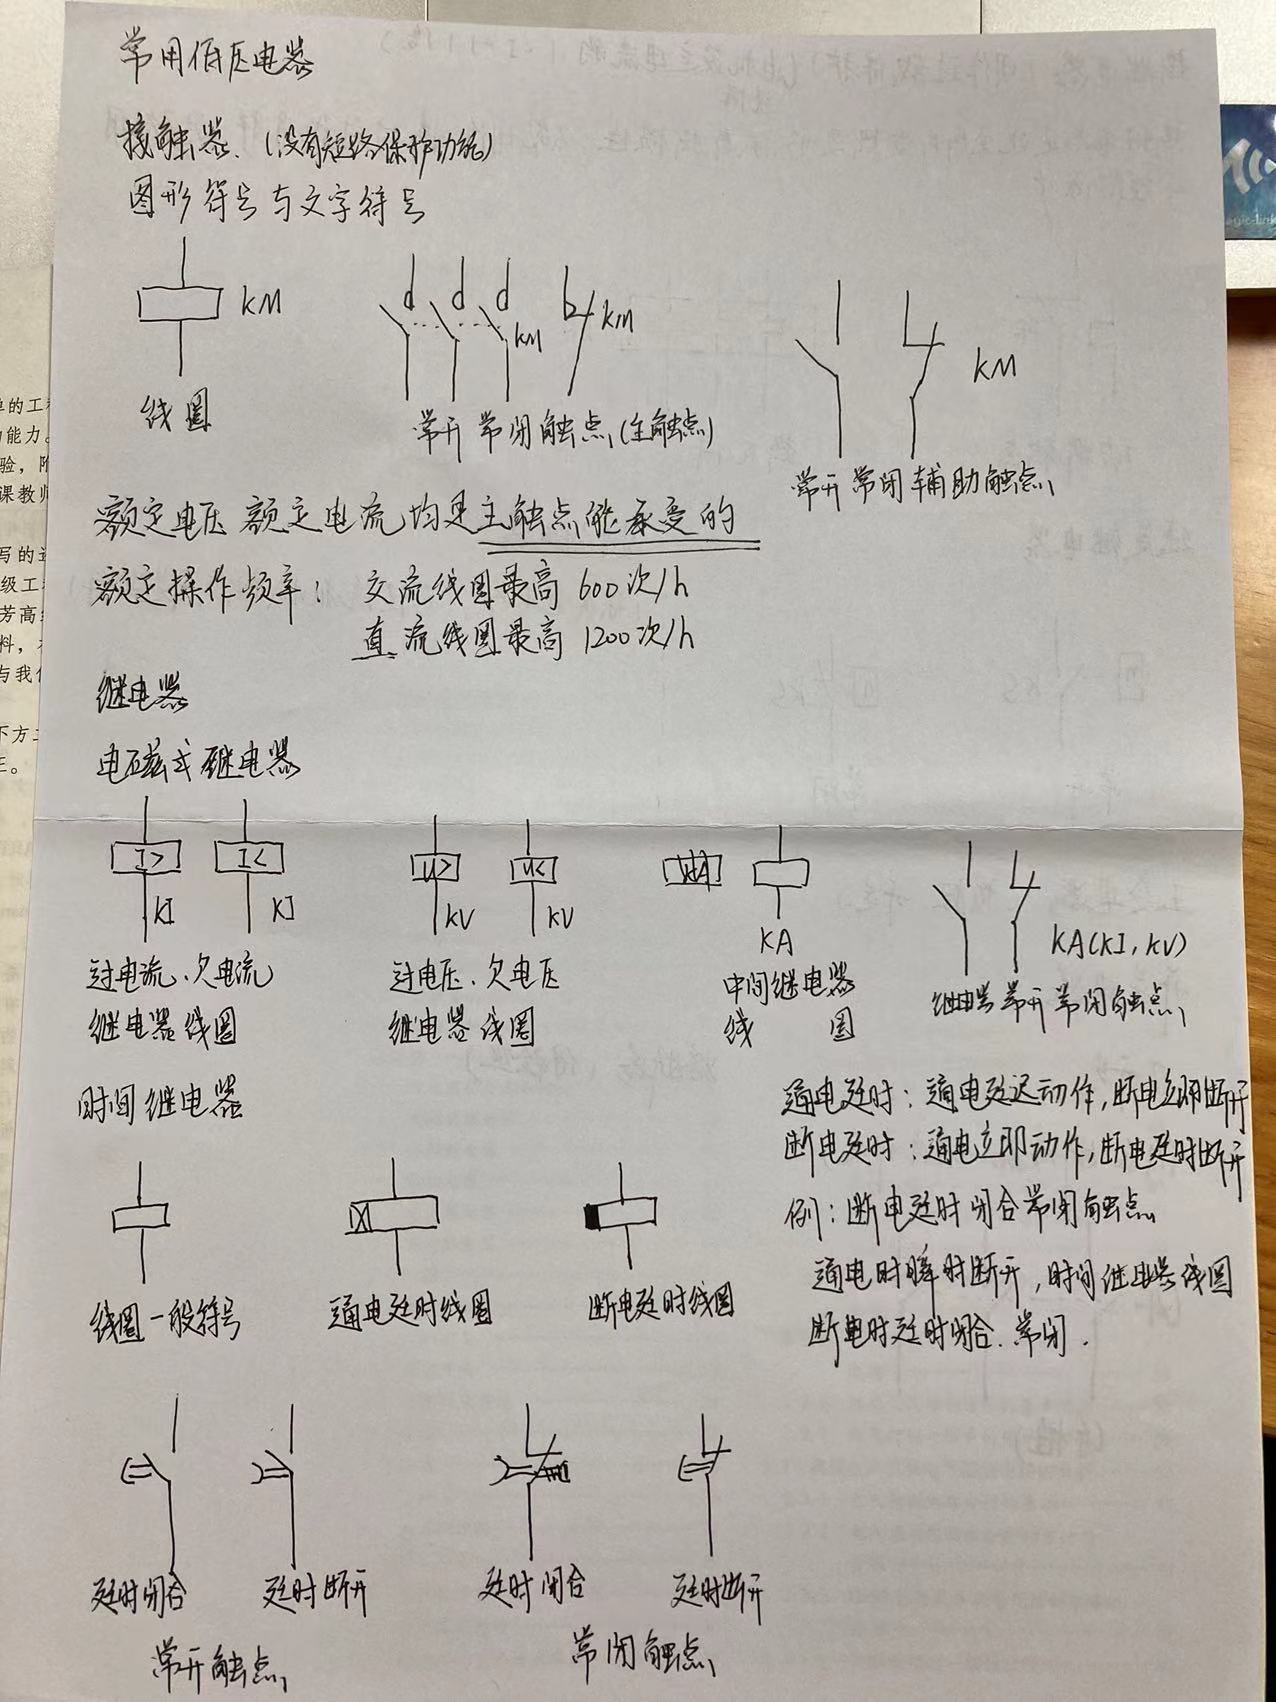 常用低压电器
接触器.(没有短路保护功能)
图形符号与文字符号
KM
KM
KM
KM
线圈
常开 常闭触点(主触点)
常开 常闭 辅助触点
额定电压 额定电流均是主触点能承受的
额定操作频率: 交流线圈最高 600次/h
直流线圈最高 1200次/h
继电器
电磁式继电器
I> I< U> U<
KI KI KV KV KA KA(KI,KV)
过电流、欠电流 过电压、欠电压 中间继电器
继电器线圈 继电器线圈 线 圈 继电器常开常闭触点
时间继电器
通电延时: 通电延迟动作,断电立即断开
断电延时: 通电立即动作,断电延时断开
例: 断电延时闭合常闭触点
通电时瞬时断开,时间继电器线圈
断电时延时闭合.常闭.
线圈一般符号 通电延时线圈 断电延时线圈
延时闭合 延时断开 延时闭合 延时断开
常开触点 常闭触点